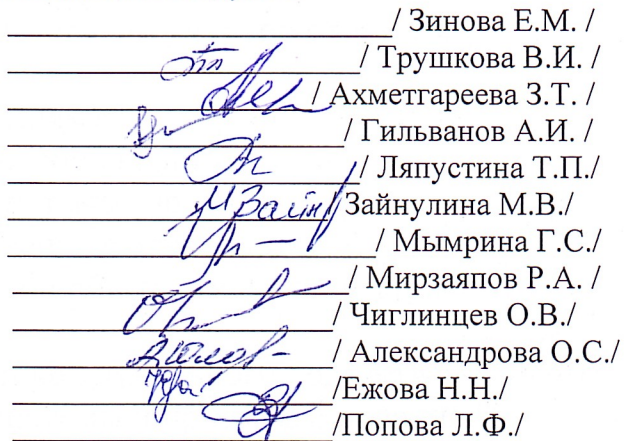 / Зинова Е.М. /
/ Трушкова В.И. /
/ Ахметгареева З.Т. /
/ Гильванов А.И. /
/ Ляпустина Т.П./
М Зайн /Зайнулина М.В./
/ Мымрина Г.С./
/ Мирзаяпов Р.А. /
/ Чиглинцев О.В./
/ Александрова О.С./
/Ежова Н.Н./
/Попова Л.Ф./